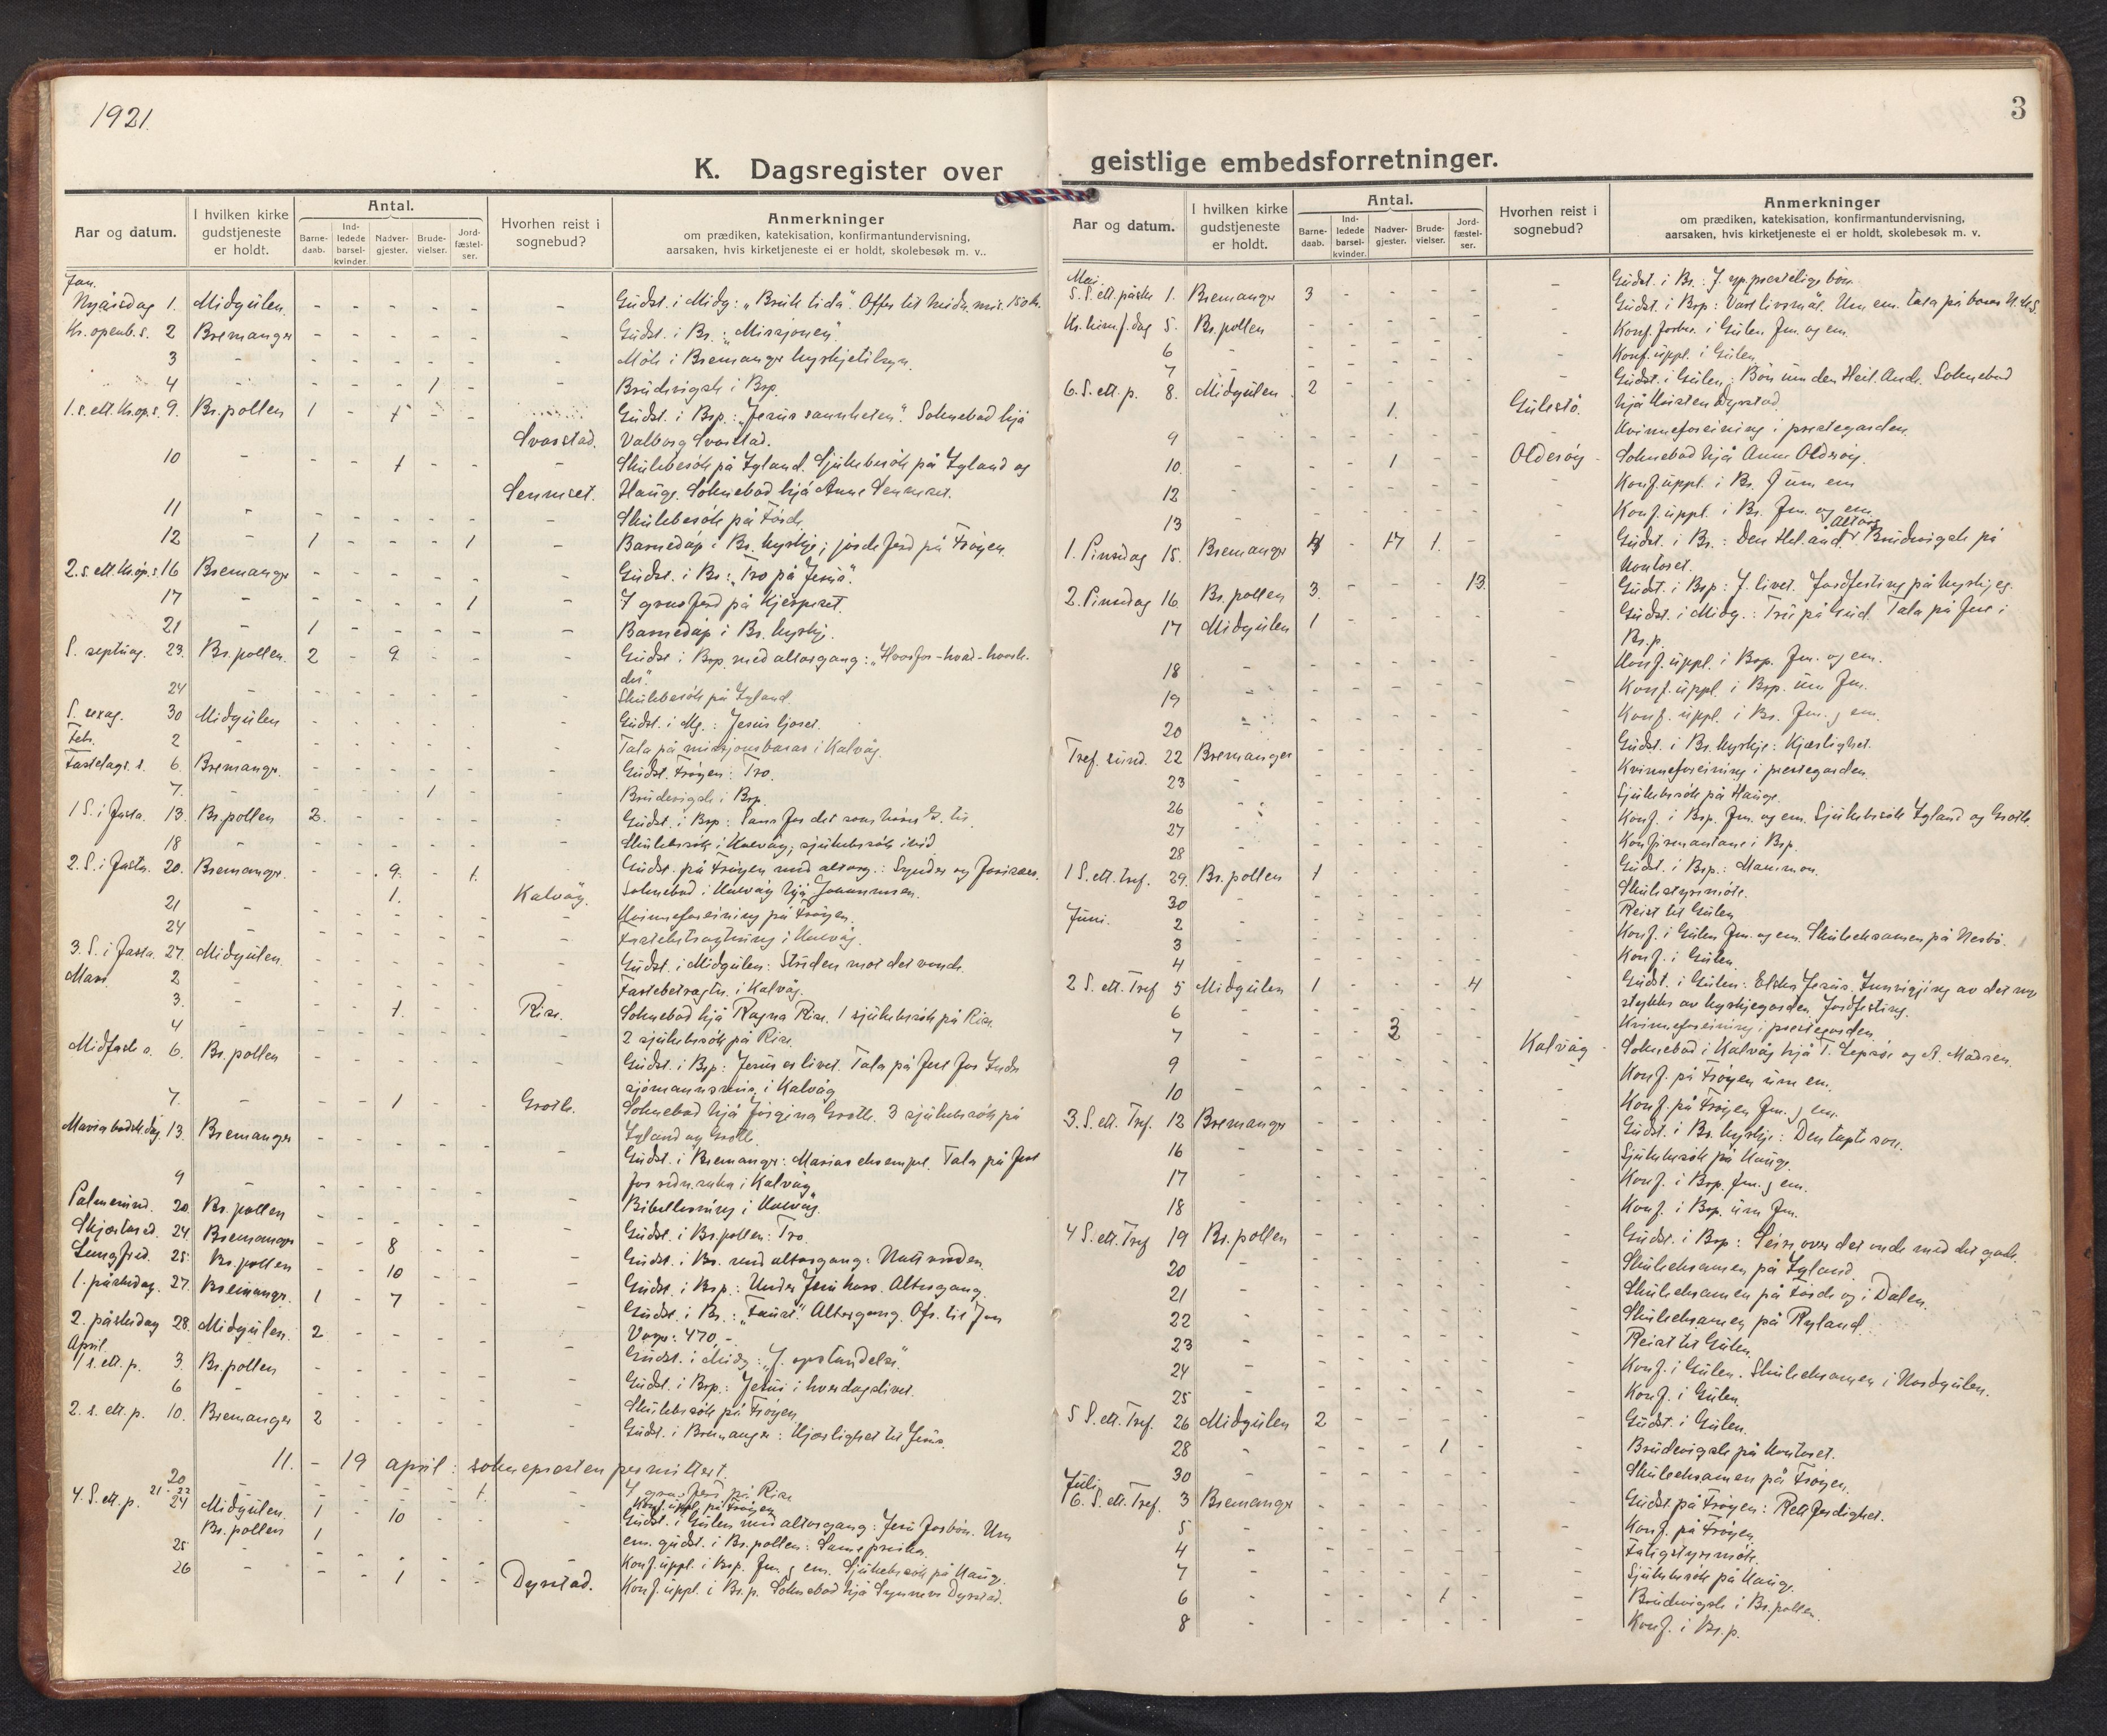 1921.
3
K. Dagsregister over geistlige embedsforretninger.
Aar og datum.
I hvilken kirke gudstjeneste er holdt.
Antal.
Barne-daab.
Ind-ledede barsel-kvinder.
Nadver-gjester.
Brude-vielser.
Jord-fæstel-ser.
Hvorhen reist i sognebud?
Anmerkninger
om prædiken, katekisation, konfirmantundervisning,
aarsaken, hvis kirketjeneste ei er holdt, skolebesøk m. v..
Jan.
Nyårsdag 1. Midgulen - - - - - - Gudst. i Midg: „Bruk tida". Offer til
Kr. openb. s. 2 Bremanger - - - - - - Gudst. i Br.: „Missjonen".
3 - - - - - - - Møte i Bremanger kyrkjetilsyn.
4 - - - - 1 - - Brudvigsle i Brp.
1. s. ett. Kr.op.s. 9. Br.pollen 1 - 1 - - Gudst. i Brp.: „Jesus sannheten". Soknebod hjå
Svarstad. Valborg Svarstad.
10 - - - 1 - - - Skulebesøk på Igland. Sjukebesøk på Igland og
Senneset. Hauge. Soknebod hjå Anne Senneset.
11 - - - - - - - Skulebesøk på Førde.
12 - 1 - - - 1 - Barnedåp i Br. kyrkje; jordeferd på Frøyen.
2. s. ett. Kr.op.s. 16 Bremanger - - - - - - Gudst. i Br.: „Tro på Jesus".
17 - - - - - 1 - I gravferd på
21 - 1 - - - - - Barnedåp i Br. kyrkj.
S. septuag. 23. Br.pollen. 2 - 9 - - - Gudst i Brp. med altargang: „Hvorfor - hvad -
24 - Skulebesøk på Igland.
S. sexag. 30 Midgulen - - - - - - Gudst. i Mg.: Jesus ljoset.
Feb. 2 - - - - - - - Tala på missjonsbasar i Kalvåg.
Fastelags. s. 6. Bremanger. - - - - - - Gudst. Frøyen: Tro.
7. - - - - 1 - - Brudevigsle i Brp.
1 S. i fasta. 13. Br.pollen 2. - - - - - Gudst. i Brp:
18 - - - - - - - Skulebesøk i Kalvåg; sjukebesøk ibid
2. S. i fasta. 20. Bremanger. - - 9. - 1. Gudst. på Frøyen med altarg.: Synder og fariseer.
21 - - - 1. - - Kalvåg. Soknebod i Kalvåg hjå Johannessen.
Kvinneforeining på Frøyen.
24 - - - - - - - Fastebetragtning i Kalvåg.
3. S. i fasta. 27. Midgulen. - - - - - - Gudst. i Midgulen: Striden mot det vonde.
Mars 2 - - - - - - - Fastebetragtn. i Kalvåg.
3. - - - 1. - - Rise. Soknebod hjå Ragna Rise. 1 sjukebesøk på Rise.
4 - - - - - - - 2 sjukebesøk på Rise.
Midfaste s. 6. Br.pollen - - - - - - Gudst. i Brp: Jesus er livet. Tala på fest for Indre
sjømannsmisj. i Kalvåg
7. - - - 1 - - Grotle. Soknebod hjå Jørgina Grotle. 3 sjukebesøk på
Igland og Grotle.
Maria bodsk.dag. 13. Bremanger - - - - - - Gudst. i Bremanger: Marias eksempel. Tala på fest
i Kalvåg
9 - Bibellesning i Kalvåg.
Palmesund. 20. Br.pollen - - - - - - Gudst. i Br.pollen: Tro.
Skjærtorsd. 24. Bremanger - - 8 - - - Gudst. i Br. med altargang: Nattverden.
Langfred. 25. Br.pollen - - 10 - - - Gudst. i Brp.: Under Jesu kors. Altargang.
1. påskedag. 27. Bremanger. 1 - 7 - - - Gudst. i Br.: Altargang. Ofr. til
470,-
2. påskedag 28. Midgulen. 2 - - - - - Gudst. i Midg.: „J. opstandelse".
April.
1 s. ett. p. 3. Br.pollen - - - - - - Gudst. i Brp.: Jesus i hverdagslivet.
6 - - - - - - - Skulebesøk på Frøyen.
2. s. ett. p. 10. Bremanger 2 - - - - - Gudst. i Bremanger: Kjærlighet til Jesus.
11. - 19 april: soknepresten permittert.
20 - - - - - 1. - I gravferd på Rise
21-22 Konf. uppl. på Frøyen
4. S. ett. p. 24 Midgulen. 1 - 10 - - - Gudst. i Gulen med altargang: Jesu forbøn. Um
Br.pollen 1 em. gudst. i Br.pollen: Same preika.
25 - - - - - - - Konf. uppl. i Brp. fm. og em. Sjukebesøk på Haug.
26 - - - 1 - - Dyrstad. Konf. uppl. i Br.p. Soknebod hjå Synneve Dyrstad.
Aar og datum.
I hvilken kirke gudstjeneste er holdt.
Antal.
Barne-daab.
Ind-ledede barsel-kvinder.
Nadver-gjester.
Brude-vielser.
Jord-fæstel-ser.
Hvorhen reist i sognebud?
Anmerkninger
om prædiken, katekisation, konfirmantundervisning,
aarsaken, hvis kirketjeneste ei er holdt, skolebesøk m. v.
Mai.
5. S. ett. påske 1. Bremanger 3 - - - - - Gudst. i Br.: J. yppersteprestelige bøn.
Gudst. i Brp: Vårt livsmål. Um em. tala på
Kr. himf. dag 5. Br.pollen - - - - - - Konf. forbu. i Gulen fm. og em.
6 - - - - - - - Konf. uppl. i Gulen
7 -
6. S. ett. p. 8. Midgulen 2 - - - - Gudst. i Gulen: Bøn um den Heil. And. Soknebod
1. Gulestø. hjå Kirsten Dyrstad
9 - - - - - - - Kvinneforeining i prestegarden.
10. - - - 1 - - Oldersøy - Soknebod hjå Anne Oldersøy.
12 - - - - - - - Konf. uppl. i Br. f um em
13 - - - - - - - Konf. uppl. i Br. fm. og em.
1. Pinsedag 15. Bremanger 4 - 17 1. - - Gudst. i Br.: Den Hel. and. Altarg. Brudvigsle på
kontoret.
2. Pinsedag 16. Br.pollen 3. - - - 13. - Gudst. i Brp: J. livet. Jordfesting på kyrkjeg.
17 Midgulen 1 - - - - - Gudst. i Midg.: Tru på Gud. Tala på fest i
Br.p.
18 - - - - - - - Konf. uppl. i Brp. fm. og em.
19 - - - - - - - Konf. uppl. i Brp. um fm.
20 - - - - - - - Konf. uppl. i Br. fm. og em.
Tref. sund. 22 Bremanger - - - - - - Gudst. i Br. kyrkje: Kjærlighet.
23 - - - - - - - Kvinneforeining i prestegarden.
26 - - - - - - - Sjukebesøk på Hauge.
27 - - - - - - - Konf. i Brp. fm. og em. Sjukebesøk Igland og Grotle.
28 - - - - - - - Konfirmantane i Brp.
1 S. ett. tref. 29. Br.pollen 1 - - - - - Gudst. i Brp.: Mammon.
30 - - - - - - - Skulestyremøte.
Juni. 2 - - - - - - - Reist til Gulen
3 - - - - - - - Konf. i Gulen fm. og em. Skuleeksamen på Nesbø.
4 - - - - - - - Konf. i Gulen
2 S. ett. Tref 5 Midgulen 1 - - - 4 - Gudst. i Gulen: Elsker Jesus. Innvigjing av det nye
stykke av kyrkjegarden. Jordfesting.
6 - - - - - - - Kvinneforeining i prestegarden.
7 - - - 3 - - Kalvåg - Soknebod i Kalvåg hjå T. Lepsøe og A. Madsen.
9 - - - - - - - Konf. på Frøyen um em.
10 - - - - - - - Konf. på Frøyen fm. og em.
3. S. ett. Tref. 12 Bremanger - - - - - - Gudst. i Br. kyrkje: Den tapte son.
16 - - - - - - - Sjukebesøk på Hauge.
17 - - - - - - - Konf. i Brp. fm. og em.
18 - - - - - - - Konf. i Brp. um fm.
4 S. ett. Tref 19 Br.pollen - - - - - - Gudst. i Brp: Seire over det onde med det gode.
20 - - - - - - - Skuleeksamen på Igland.
21 - - - - - - - Skuleeksamen på Førde og i Dalen.
22 - - - - - - - Skuleeksamen på Ryland.
23 - - - - - - - Reist til Gulen.
24 - - - - - - - Konf. i Gulen. Skuleeksamen i Nordgulen.
25 - - - - - - - Konf. i Gulen.
5 S. ett. Tref. 26 Midgulen 2 - - - - - Gudst. i Gulen.
28 - - - - 1 - - Brudevigsle på kontoret.
30 - - - - - - - Skuleeksamen på Frøyen.
Juli
6. S. ett. Tref. 3 Bremanger - - - - - - Gudst. på Frøyen: Rettferdighet.
5 - - - - - - - Konf. på Frøyen
4 - - - - - - - Fatigstyremøte.
7 - - - - - - - Sjukebesøk på Haug.
6 - - - - 1 - - Brudevigsle i Br.pollen.
8 - - - - - - - Konf. i Br.p.